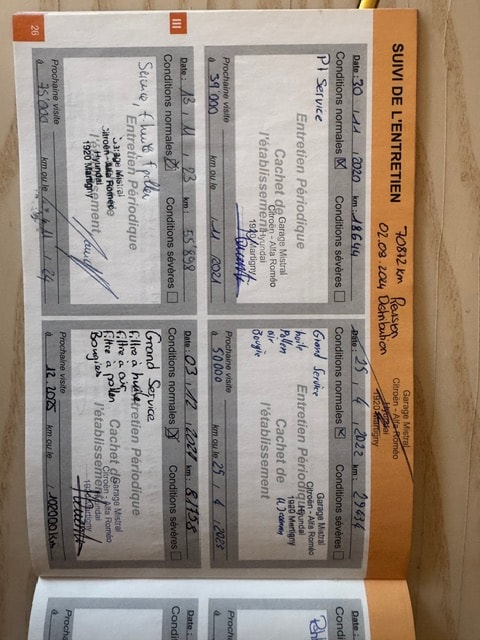 SUIVI DE L'ENTRETIEN
70872 km Revision
02.09.2024 Distribution
Garage Mistral
Citroën - Alfa Roméo
Hyundai
1920 Martigny
Date: 30 . 11 . 2020 km: 18644
Conditions normales Conditions sévères
P1 Service
Entretien Périodique
Cachet de
l'établissement
Garage Mistral
Citroën - Alfa Roméo
Hyundai
1920 Martigny
Prochaine visite
à 39'000 km ou le . 11 . 2021
Date: 25 . 4 . 2022 km:
Conditions normales Conditions sévères
Grand Service
huile
Pollen
air
Bougie
Entretien Périodique
Cachet de
l'établissement
Garage Mistral
Citroën - Alfa Roméo
Hyundai
1920 Martigny
Prochaine visite
à 50000 km ou le 25 . 4 . 2023
III
Date: 13 . 11 . 23 km: 55'898
Conditions normales Conditions sévères
Service, pollen
Entretien Périodique
Cachet de
l'établissement
Garage Mistral
Citroën - Alfa Roméo
Hyundai
1920 Martigny
Prochaine visite
à 75'000 km ou le . 11 . 24
Date: 03 . 12 . km:
Conditions normales Conditions sévères
Grand Service
Filtre à huile
Filtre à air
Filtre à pollen
Bougies
Entretien Périodique
Cachet de
l'établissement
Garage Mistral
Citroën - Alfa Roméo
Hyundai
1920 Martigny
Prochaine visite
à 12.2025 km ou le 102000 km
26
Date:
Conditions
Prochaine
à
Date:
Conditions
Prochaine
à